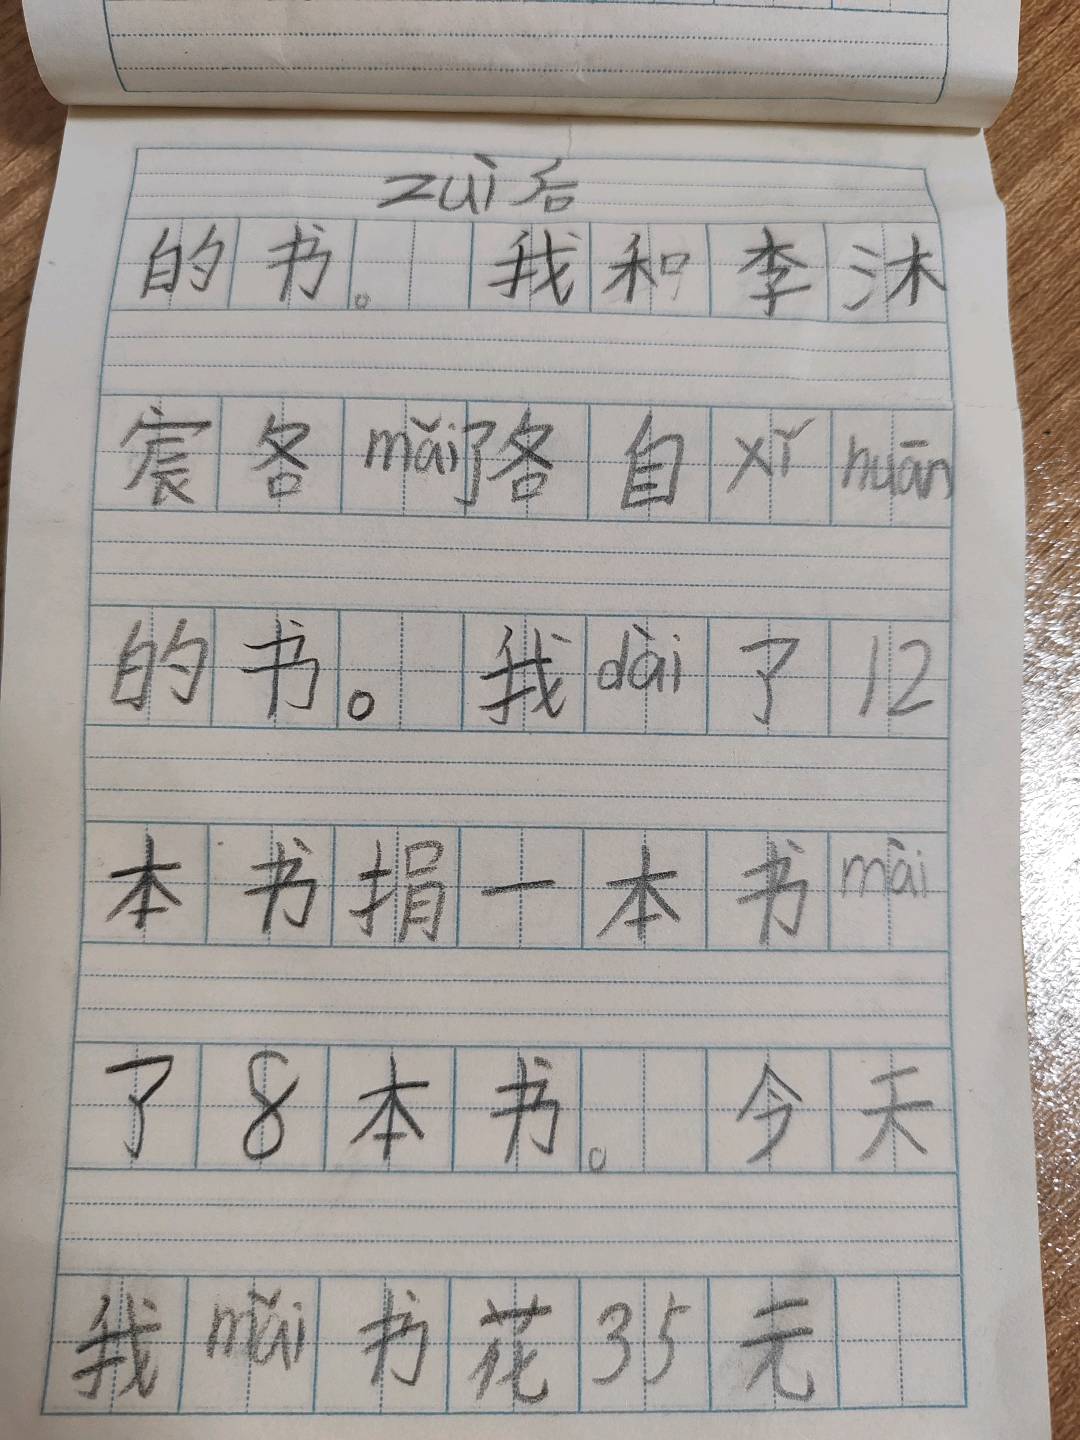 zuì后
的书。我和李沐
宸各mǎi了各自xǐhuān
的书。我dài了12
本书捐一本书mài
了8本书。今天
我mǎi书花35元